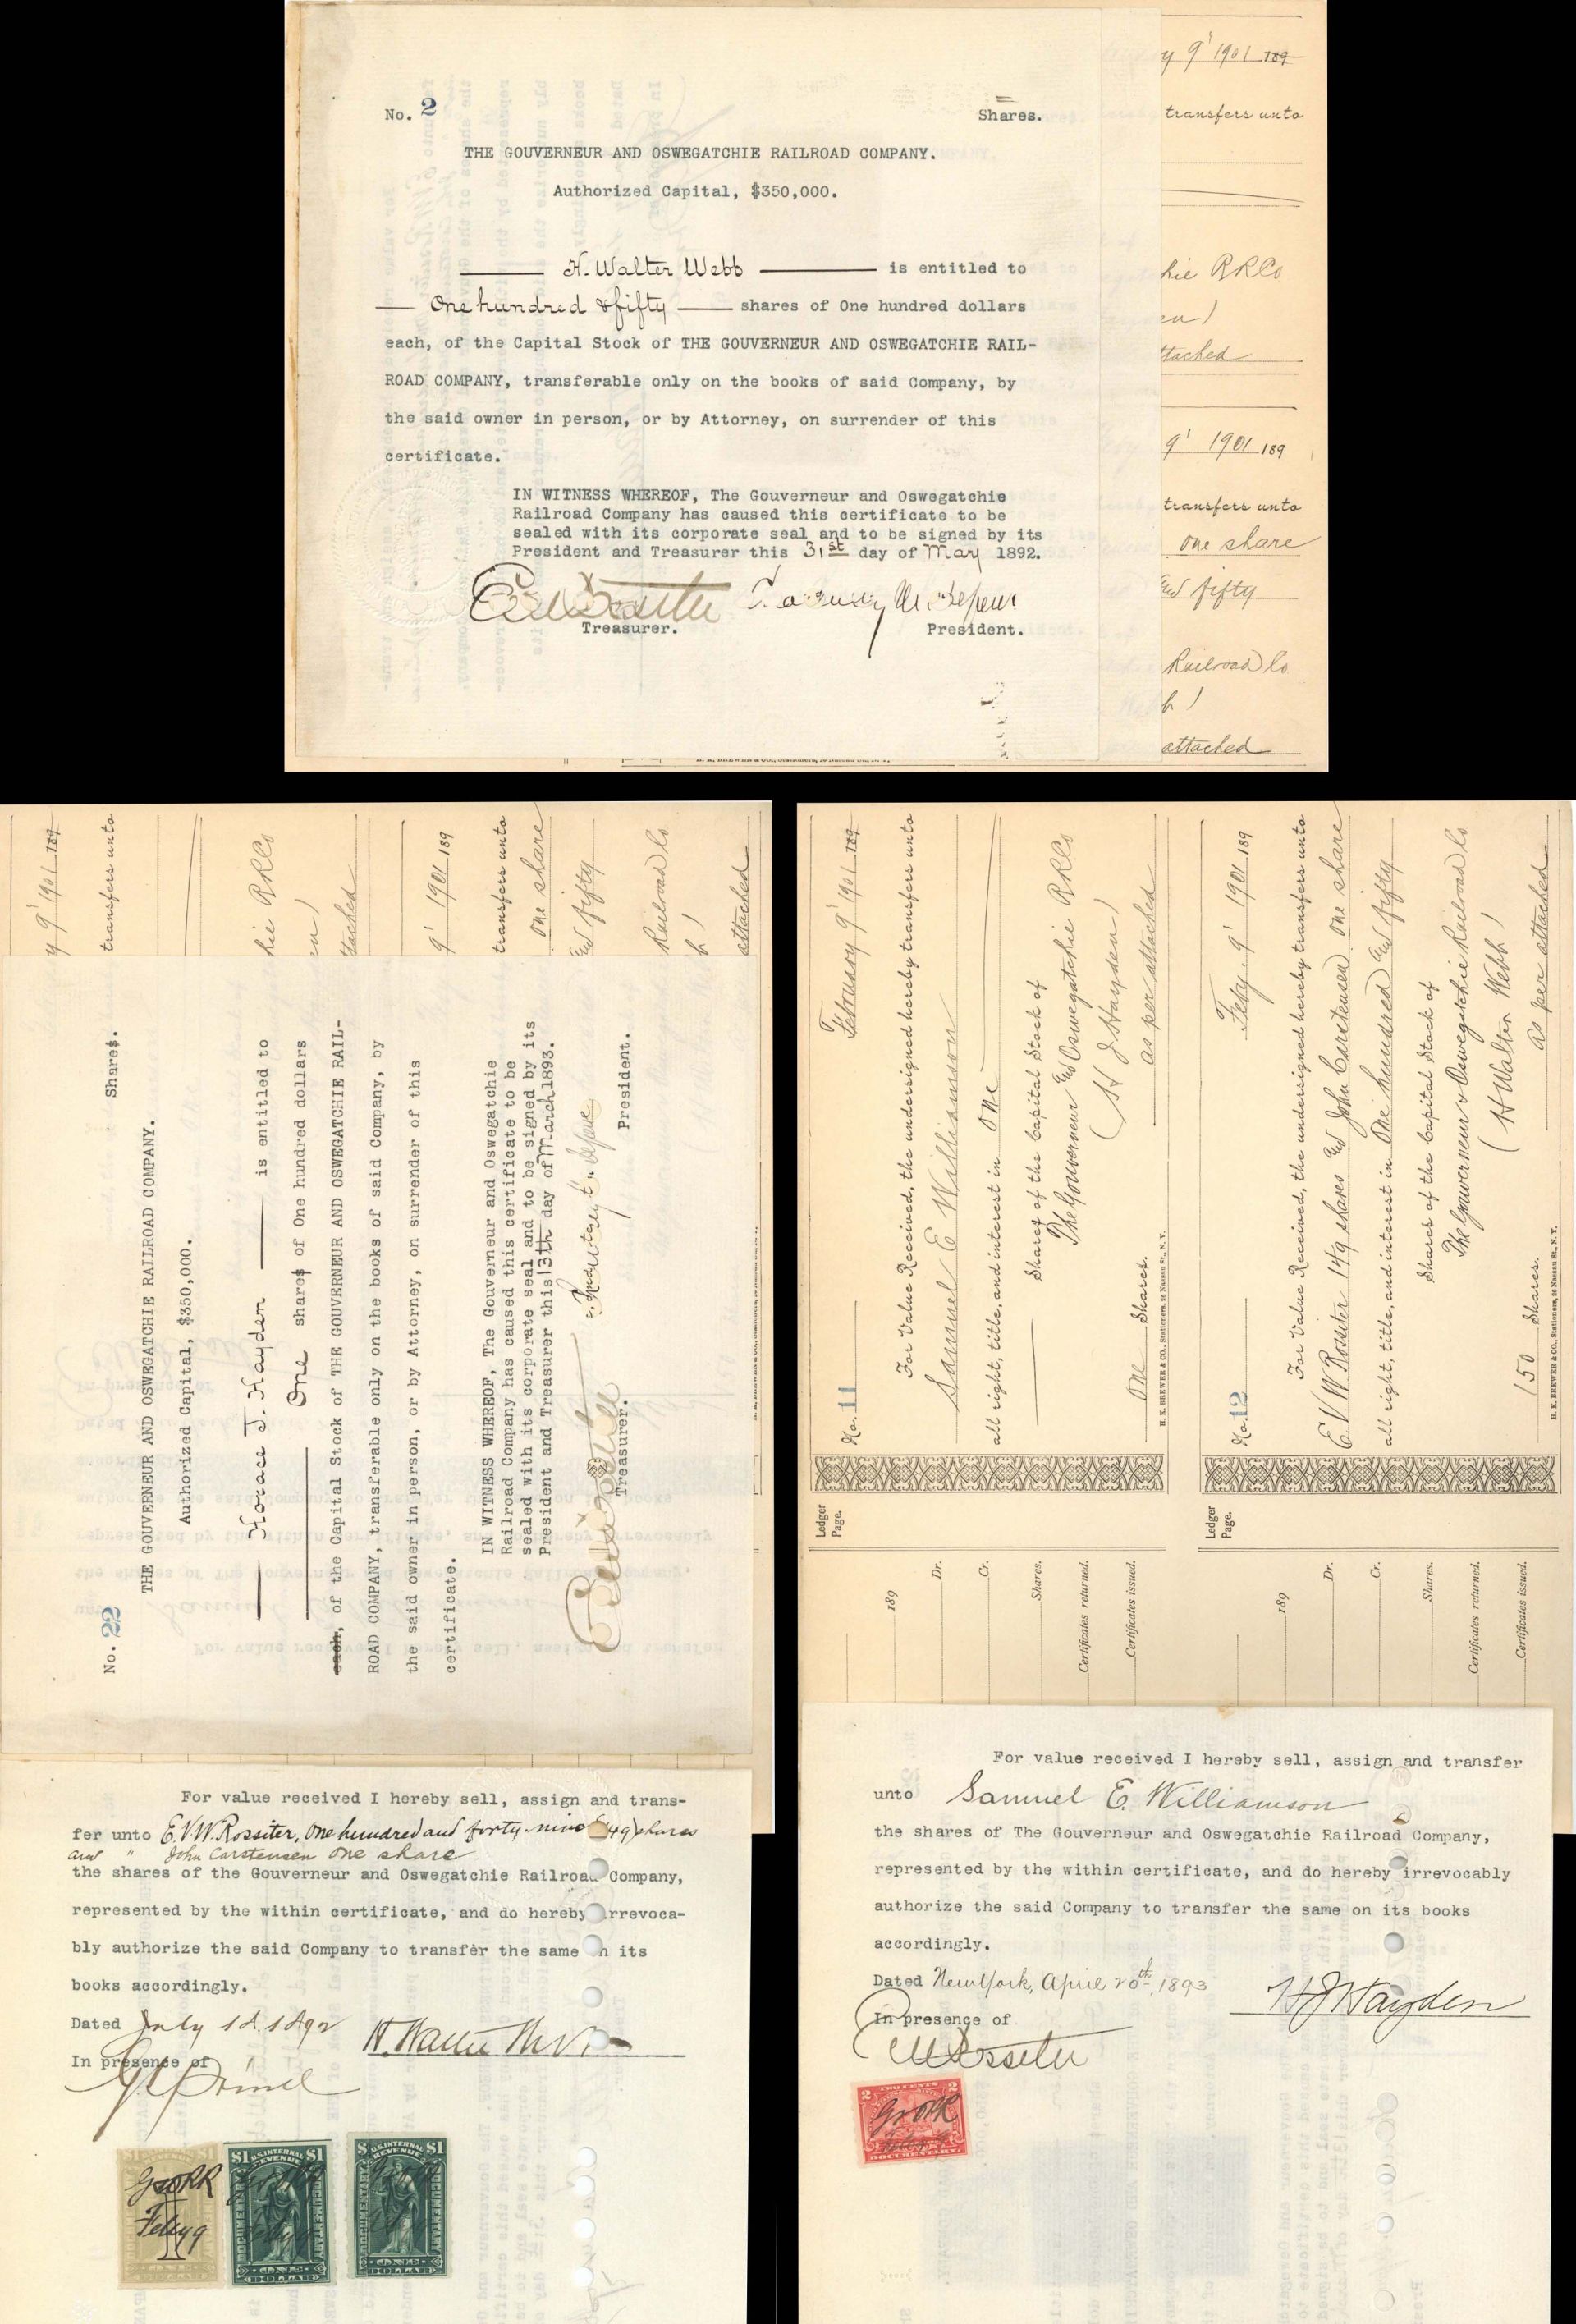 No. 2
Shares.
THE GOUVERNEUR AND OSWEGATCHIE RAILROAD COMPANY.
Authorized Capital, $350,000.
H. Walter Webb is entitled to
One hundred & fifty shares of One hundred dollars
each, of the Capital Stock of THE GOUVERNEUR AND OSWEGATCHIE RAIL-
ROAD COMPANY, transferable only on the books of said Company, by
the said owner in person, or by Attorney, on surrender of this
certificate.
IN WITNESS WHEREOF, The Gouverneur and Oswegatchie
Railroad Company has caused this certificate to be
sealed with its corporate seal and to be signed by its
President and Treasurer this 31st day of May 1892.
Treasurer.
President.
y 9' 1901 189
transfers unto
hie RRCo
en)
ttached
9' 1901 189
transfers unto
one share
and fifty
Railroad Co
b)
attached
y 9' 1901 189
transfers unto
hie RRCo
en)
ttached
9' 1901 189
transfers unto
one share
and fifty
Railroad Co
b)
attached
No. 22
Shares.
THE GOUVERNEUR AND OSWEGATCHIE RAILROAD COMPANY.
Authorized Capital, $350,000.
Horace J. Hayden is entitled to
One shares of One hundred dollars
each, of the Capital Stock of THE GOUVERNEUR AND OSWEGATCHIE RAIL-
ROAD COMPANY, transferable only on the books of said Company, by
the said owner in person, or by Attorney, on surrender of this
certificate.
IN WITNESS WHEREOF, The Gouverneur and Oswegatchie
Railroad Company has caused this certificate to be
sealed with its corporate seal and to be signed by its
President and Treasurer this 13th day of March 1893.
Treasurer.
President.
For value received I hereby sell, assign and trans-
fer unto E.V.W. Rossiter, One hundred and forty-nine (149) shares
and " John Carstensen one share
the shares of the Gouverneur and Oswegatchie Railroad Company,
represented by the within certificate, and do hereby irrevoca-
bly authorize the said Company to transfer the same on its
books accordingly.
Dated July 1st 1892
H. Walter Webb
In presence of
$1 U.S. INTERNAL REVENUE $1
DOCUMENTARY
ONE DOLLAR
GORR
Feby 9
$1 U.S. INTERNAL REVENUE $1
DOCUMENTARY
ONE DOLLAR
$1 U.S. INTERNAL REVENUE $1
DOCUMENTARY
ONE DOLLAR
Ledger Page.
189
Dr.
Cr.
Shares.
Certificates returned.
Certificates issued.
No. 11
February 9' 1901 189
For Value Received, the undersigned hereby transfers unto
Samuel E Williamson
all right, title, and interest in one
Shares of the Capital Stock of
The Gouverneur and Oswegatchie RRCo
(H J Hayden)
one Shares. as per attached
H. K. BREWER & CO., Stationers, 28 Nassau St., N.Y.
Ledger Page.
189
Dr.
Cr.
Shares.
Certificates returned.
Certificates issued.
No. 12
Feby. 9' 1901 189
For Value Received, the undersigned hereby transfers unto
E V W Rossiter 149 shares and John Carstensen one share
all right, title, and interest in One hundred and fifty
Shares of the Capital Stock of
The Gouverneur & Oswegatchie Railroad Co
(H Walter Webb)
150 Shares. as per attached
H. K. BREWER & CO., Stationers, 28 Nassau St., N.Y.
For value received I hereby sell, assign and transfer
unto Samuel E. Williamson
the shares of The Gouverneur and Oswegatchie Railroad Company,
represented by the within certificate, and do hereby irrevocably
authorize the said Company to transfer the same on its books
accordingly.
Dated New York, April 20th, 1893
H J Hayden
In presence of
EVW Rossiter
2 TWO CENTS 2
GORR
Feby 9
DOCUMENTARY